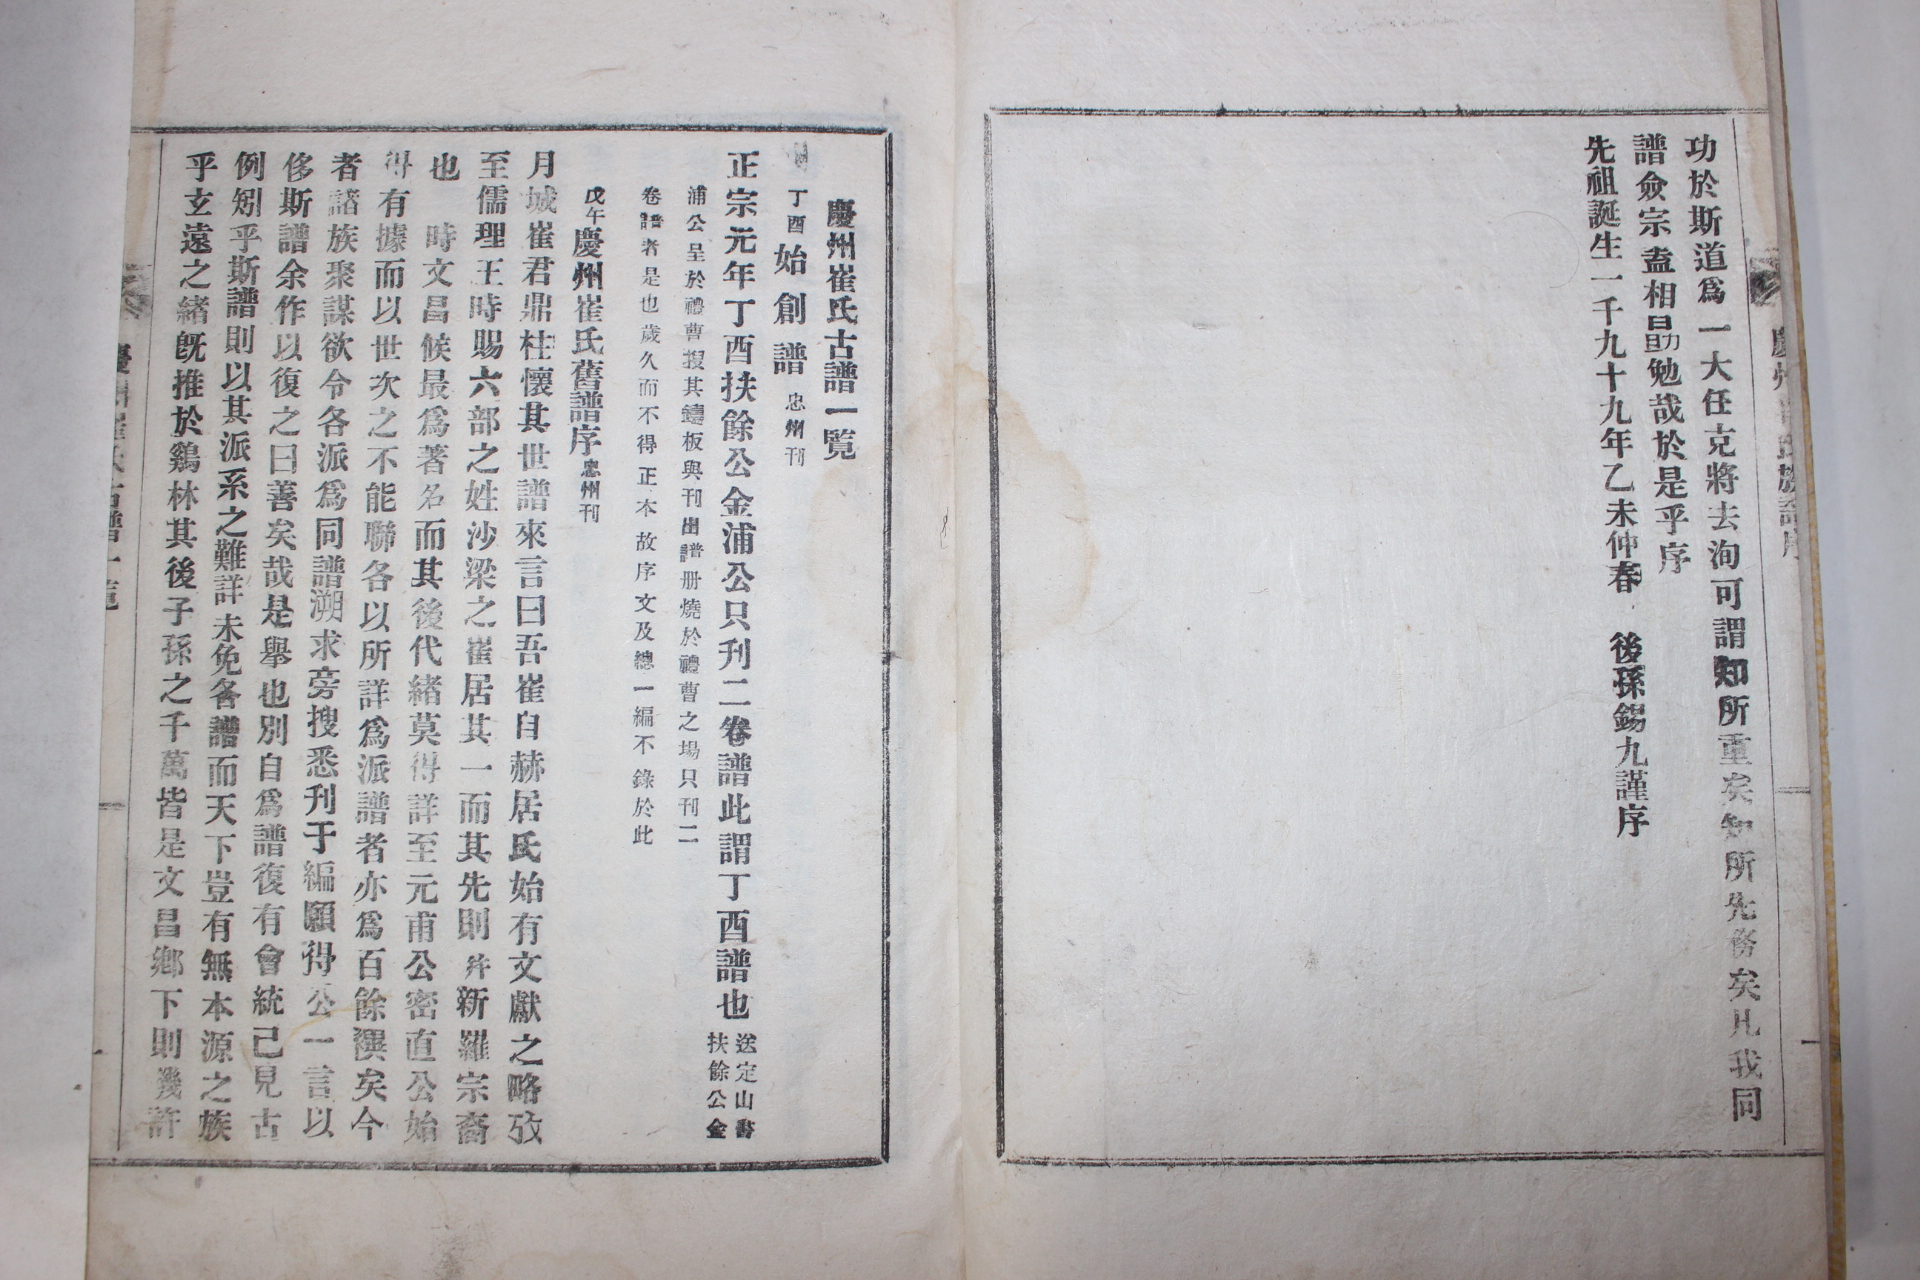 功於斯道爲一大任克將去洵可謂知所重矣知所先務矣凡我同
譜僉宗盍相勗勉哉於是乎序
先祖誕生一千九十九年乙未仲春 後孫錫九謹序
慶州崔氏古譜一覽
丁酉始創譜 忠州刊
正宗元年丁酉扶餘公金浦公只刊二卷譜此謂丁酉譜也 送定山時扶餘公金
浦公呈於禮曹搜其鑄板與刊出譜册燒於禮曹之場只刊二
卷譜者是也歲久而不得正本故序文及總一編不錄於此
戊午慶州崔氏舊譜序 忠州刊
月城崔君鼎柱懷其世譜來言曰吾崔自赫居氏始有文獻之略攷
至儒理王時賜六部之姓沙梁之崔居其一而其先則幷新羅宗裔
也 時文昌候最爲著名而其後代緒莫得詳至元甫公密直公始
得有據而以世次之不能聯各以所詳爲派譜者亦爲百餘禩矣今
者諸族聚謀欲令各派爲同譜溯求旁搜悉刊于編願得公一言以
侈斯譜余作以復之曰善矣哉是擧也別自爲譜復有會統已見古
例矧乎斯譜則以其派系之難詳未免各譜而天下豈有無本源之族
乎玄遠之緖旣推於鷄林其後子孫之千萬皆是文昌鄕下則幾許